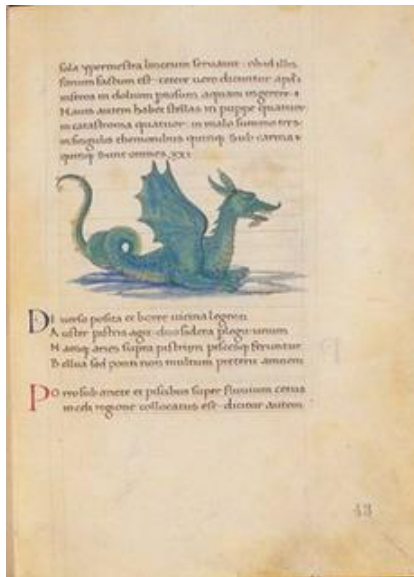 sola ypermestra linceum seruauit. ob id illis
solum factum est. cetere uero dicuntur apud
inferos in dolium pertusum aquam ingerere.
Nauis autem habet stellas in puppe quatuor
in catastroma quatuor. in malo summo tres.
in singulis themonibus quinq. Sub carina
quinq. Sunt omnes. xxi.
Diuerso posita et boree uicina legenti
Auster pistrin agit. duo sidera plegit unum
Namq. aries supra pistrim pisciq. feruntur
Bellua sed ponti non multum preterit amnem
Porro sub ariete et piscibus super fluuium cetus
in celi regione collocatus est. dicitur autem
43